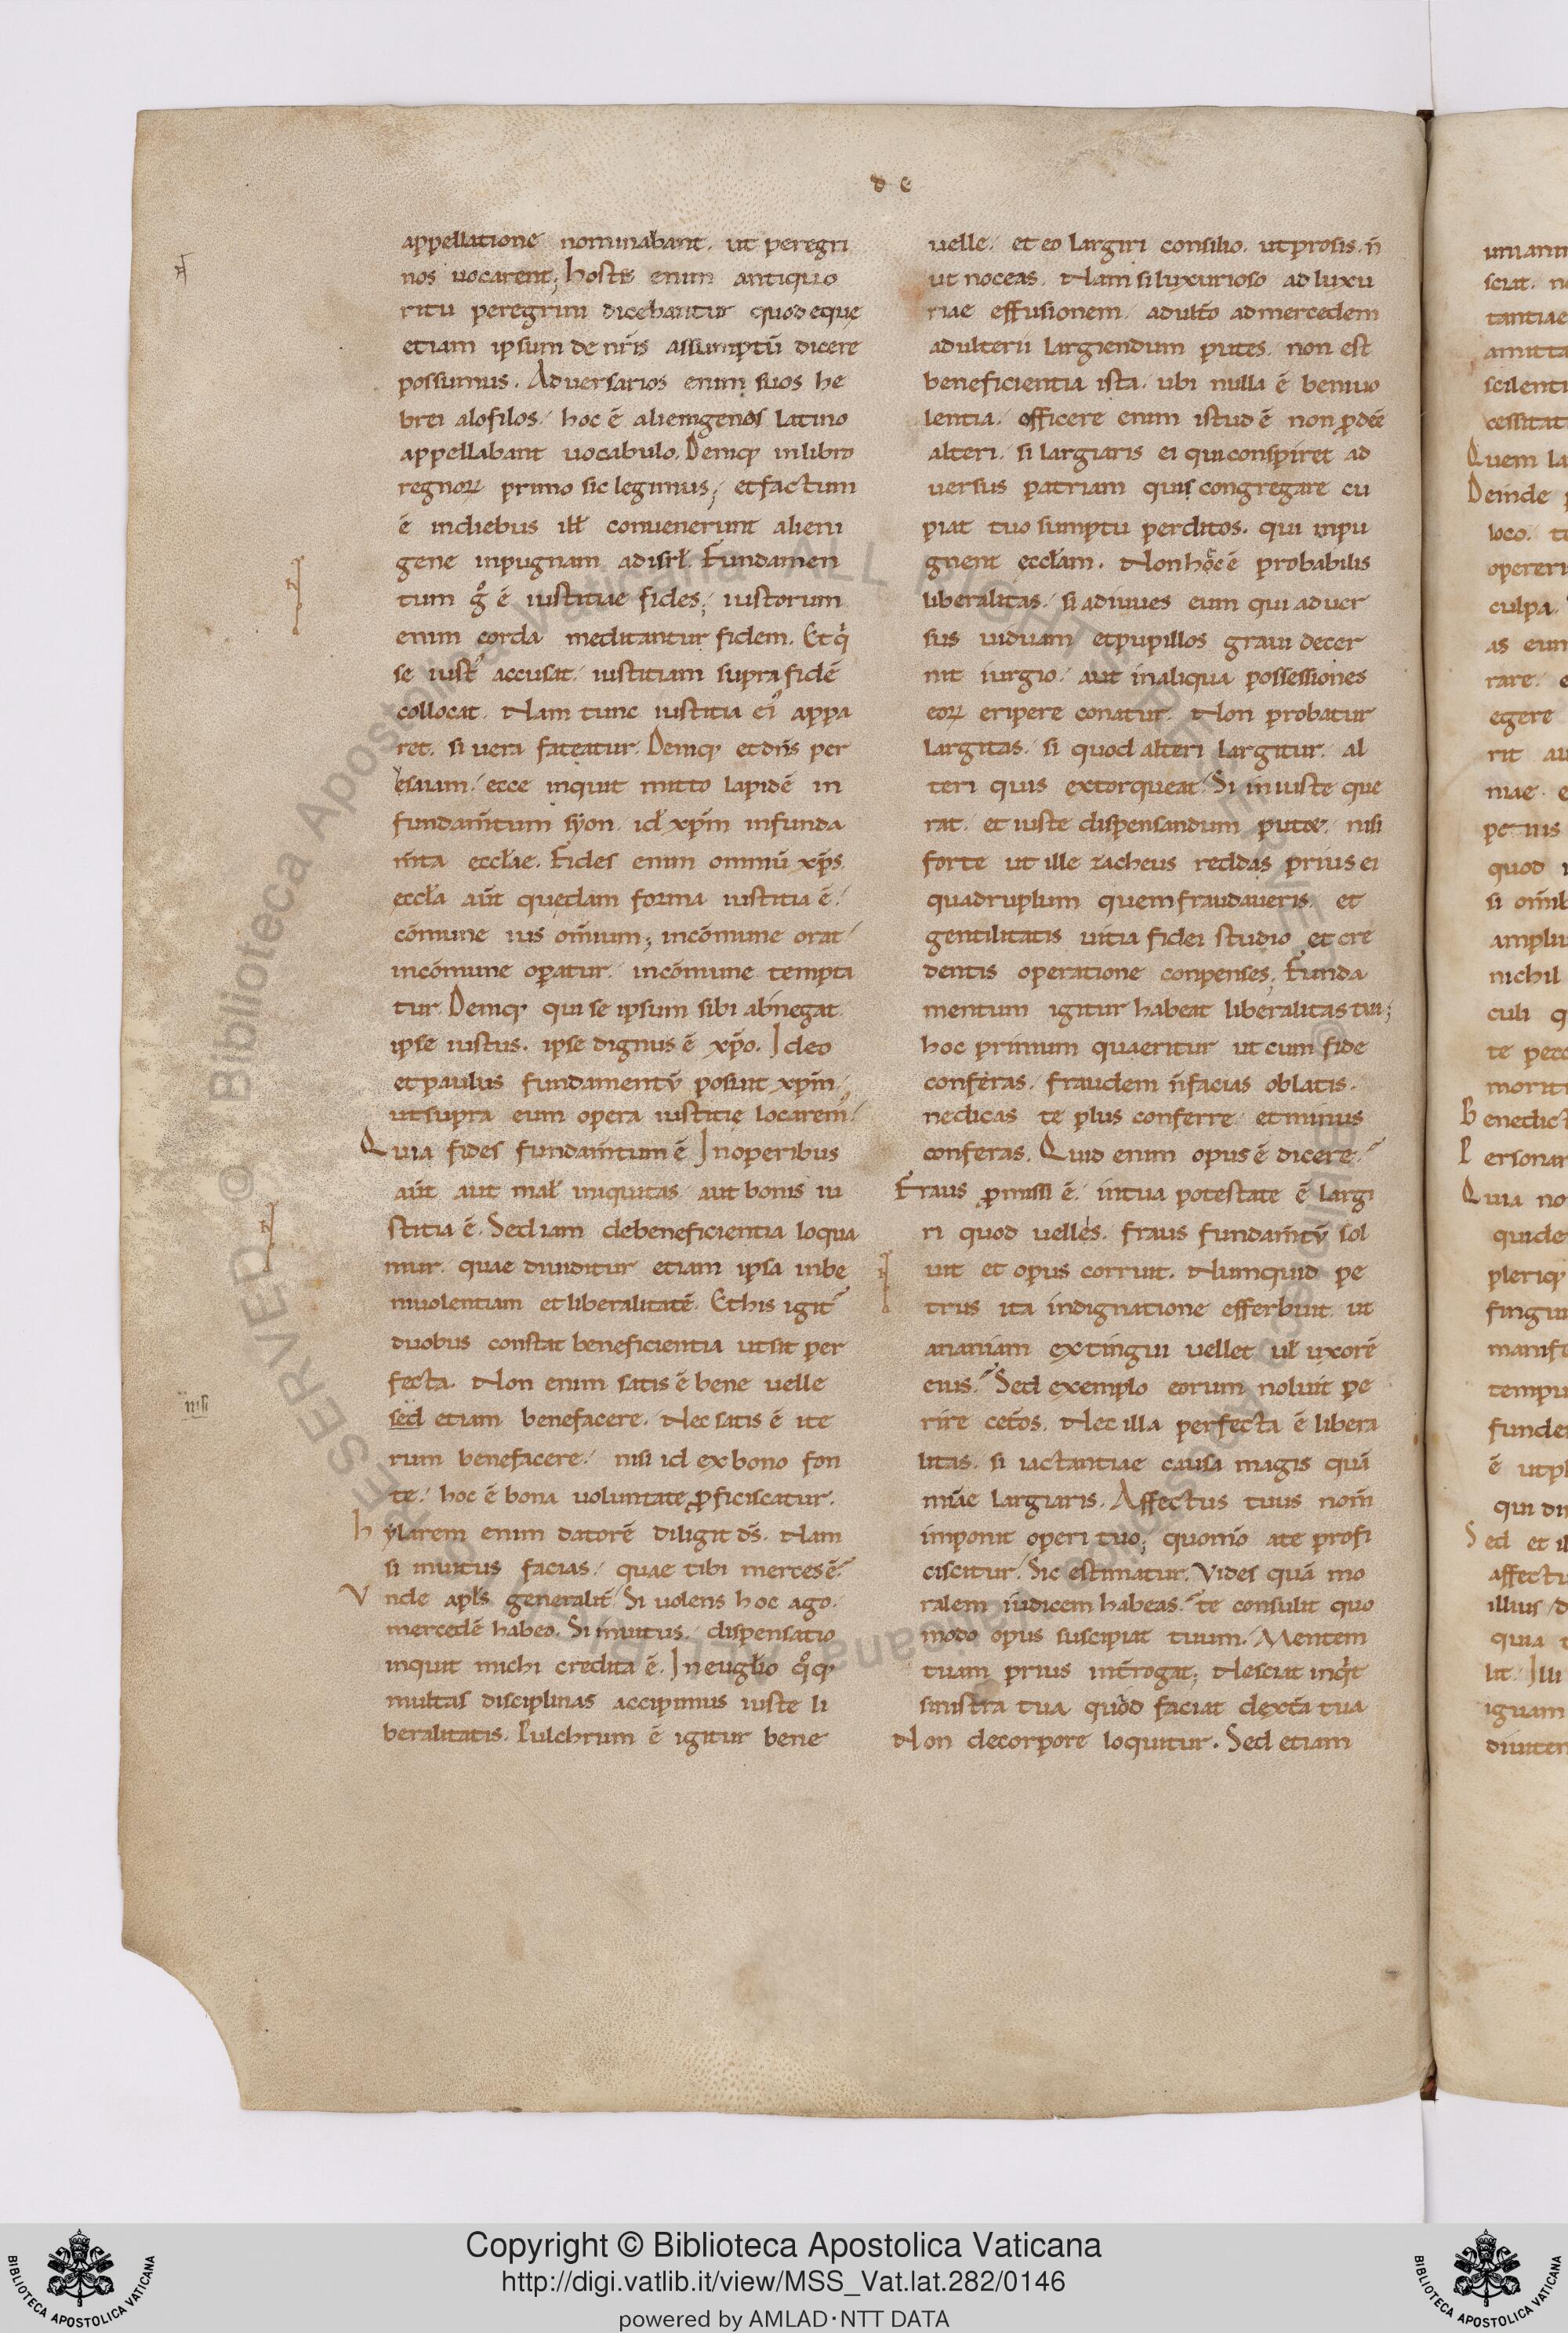 d e
appellatione nominabant. ut peregri
nos uocarent; hostes enim antiquo
ritu peregrini dicebantur quod eque
etiam ipsum de nr̄is assumptū dicere
possumus. Aduersarios enim suos he
brei alofilos. hoc ē alienigenos latino
appellabant uocabulo. Deniq; in libro
regnoꝝ primo sic legimus; et factum
ē in diebus ill̄ conuenerunt alieni
gene in pugnam ad isrl̄. Fundamen
tum gͦ ē iustitiae fides; iustorum
enim corda meditantur fidem. Et qͥ
se iust᾽ accusat. iustitiam supra fidē
collocat. Nam tunc iustitia ei᾽ appa
ret. si uera fateatur. Deniq; et dn̄s per
esaiam. ecce inquit mitto lapidē in
fundam̄tum syon. id ÷ xp̄m in funda
m̄ta eccl̄ae. Fides enim omniū xp̄s.
ęccl̄a aūt quędam forma iustitia ē.
cōmune ius om̄ium; in cōmune orat
in cōmune oꝑatur. in cōmune tempta
tur. Deniq; qui se ipsum sibi abnegat
ipse iustus. ipse dignus ē xp̄o. Ideo
et paulus fundamentū posuit xp̄m.
ut supra eum opera iustitię locarem᾽.
Quia fides fundam̄tum ē. In operibus
aūt aut mal̄ iniquitas aut bonis iu
stitia ē. Sed iam de beneficientia loqua
mur. quae diuiditur etiam ipsa in be
niuolentiam et liberalitatē. Ex his igit᾽
duobus constat beneficientia ut sit per
fecta. Non enim satis ē bene uelle
nisi
sed etiam benefacere. Nec satis ē ite
rum benefacere. nisi id ex bono fon
te. hoc ē bona uoluntate ꝓficiscatur.
hylarem enim datorē diligit ds̄. Nam
si inuitus facias. quae tibi merces ē.
Vnde apl̄s generalit᾽. Si uolens hoc ago.
mercedē habeo. Si inuitus. dispensatio
inquit michi credita ē. In eugl̄io qͦq;
multas disciplinas accipimus iuste li
beralitatis. Pulchrum ē igitur bene
uelle. et eo largiri consilio. ut prosis. n̄
ut noceas. Nam si luxurioso ad luxu
riae effusionem. adult̄o ad mercedem
adulterii largiendum putes. non est
beneficientia ista. ubi nulla ē beniuo
lentia. officere enim istud ē non ꝓdeē
alteri. si largiaris ei qui conspiret ad
uersus patriam qui congregare cu
piat tuo sumptu perditos. qui inpu
gnent ęccl̄am. Non hęc ē probabilis
liberalitas. si adiuues eum qui aduer
sus uiduam et pupillos graui decer
nit iurgio. aut in aliqua possessiones
eoꝝ eripere conatur. Non probatur
largitas. si quod alteri largitur. al
teri quis extorqueat. Si iniuste que
rat. et iuste dispensandum putet. nisi
forte ut ille zacheus reddas prius ei
quadruplum quem fraudaueris. et
gentilitatis uitia fidei studio et cre
dentis operatione conpenses; Funda
mentum igitur habeat liberalitas tua;
hoc primum quaeritur ut cum fide
conferas. fraudem n̄ facias oblatis.
ne dicas te plus conferre et minus
conferas. Quid enim opus ē dicere.
Fraus ꝓmissi ē. in tua potestate ē largi
ri quod uelles. fraus fundam̄tū sol
uit et opus corruit. Numquid pe
trus ita indignatione efferbuit ut
ananiam extingui uellet ul̄ uxorē
eius. Sed exemplo eorum noluit pe
rire cet̄os. Nec illa perfecta ē libera
litas. si iactantiae causa magis quā
mīae largiaris. Affectus tuus nom̄
imponit operi tuo; quom̄o a te profi
ciscitur. Sic estimatur. Vides quā mo
ralem iudicem habeas. te consulit quo
modo opus suscipiat tuum. Mentem
tuam prius int̄rogat; Nesciat inqͥt
sinistra tua quod faciat dext̄a tua
Non de corpore loquitur. Sed etiam
Copyright © Biblioteca Apostolica Vaticana
http://digi.vatlib.it/view/MSS_Vat.lat.282/0146
powered by AMLAD·NTT DATA